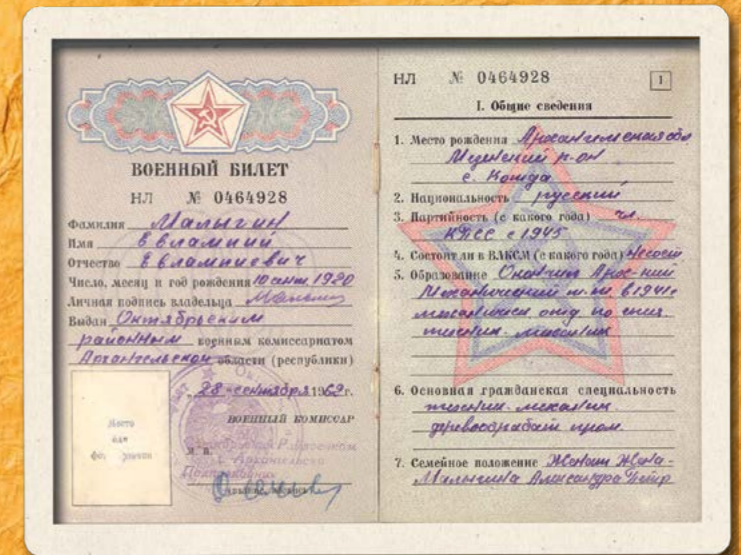 ВОЕННЫЙ БИЛЕТ
НЛ № 0464928
Фамилия Малыгин
Имя Евлампий
Отчество Евлампиевич
Число, месяц и год рождения 10 сент. 1920
Личная подпись владельца
Выдан Октябрьским
районным военным комиссариатом
Архангельской области (республики)
"28" сентября 1962 г.
ВОЕННЫЙ КОМИССАР
М. П.
Место
для
НЛ № 0464928
1
I. Общие сведения
1. Место рождения Архангельская обл
р-он
с. Койда
2. Национальность русский
3. Партийность (с какого года) чл.
КПСС с 1945
4. Состоит ли в ВЛКСМ (с какого года)
5. Образование Окончил
Механический в 1941 г.
по спец
техник-механик
6. Основная гражданская специальность
техник-механик
пром.
7. Семейное положение Женат Жена -
Малыгина Александра